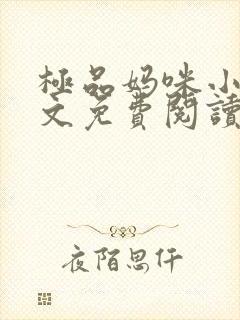 極品妈咪小
文免費閱讀
夜陌思仟